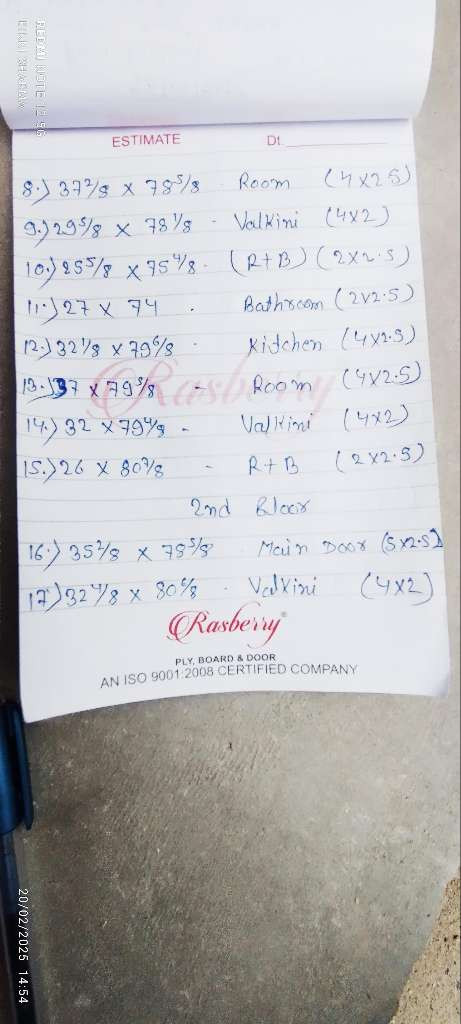 REDMI NOTE 12 5G
ESTIMATE Dt.
8.) 37 2/8 x 78 5/8 - Room (4x2.5)
9.) 29 5/8 x 78 1/8 - Valkini (4x2)
10.) 25 5/8 x 75 4/8 - (R+B) (2x2.5)
11.) 27 x 74 - Bathroom (2x2.5)
12.) 32 1/8 x 79 6/8 - Kidchen (4x2.5)
13.) 37 x 79 5/8 - Room (4x2.5)
14.) 32 x 79 4/8 - Valkini (4x2)
15.) 26 x 80 7/8 - R+B (2x2.5)
2nd Bloor
16.) 35 2/8 x 78 5/8 - Main Door (5x2.5)
17.) 32 4/8 x 80 6/8 - Valkini (4x2)
Rasberry
Rasberry®
PLY, BOARD & DOOR
AN ISO 9001:2008 CERTIFIED COMPANY
20/02/2025 14:54